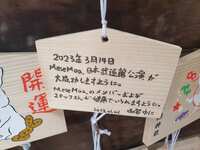 2023年3月14日
MeseMoa.日本武道館公演が
大成功しますように。
MeseMoa.のメンバーおよび
スタッフさんが健康でいられますように。
開運